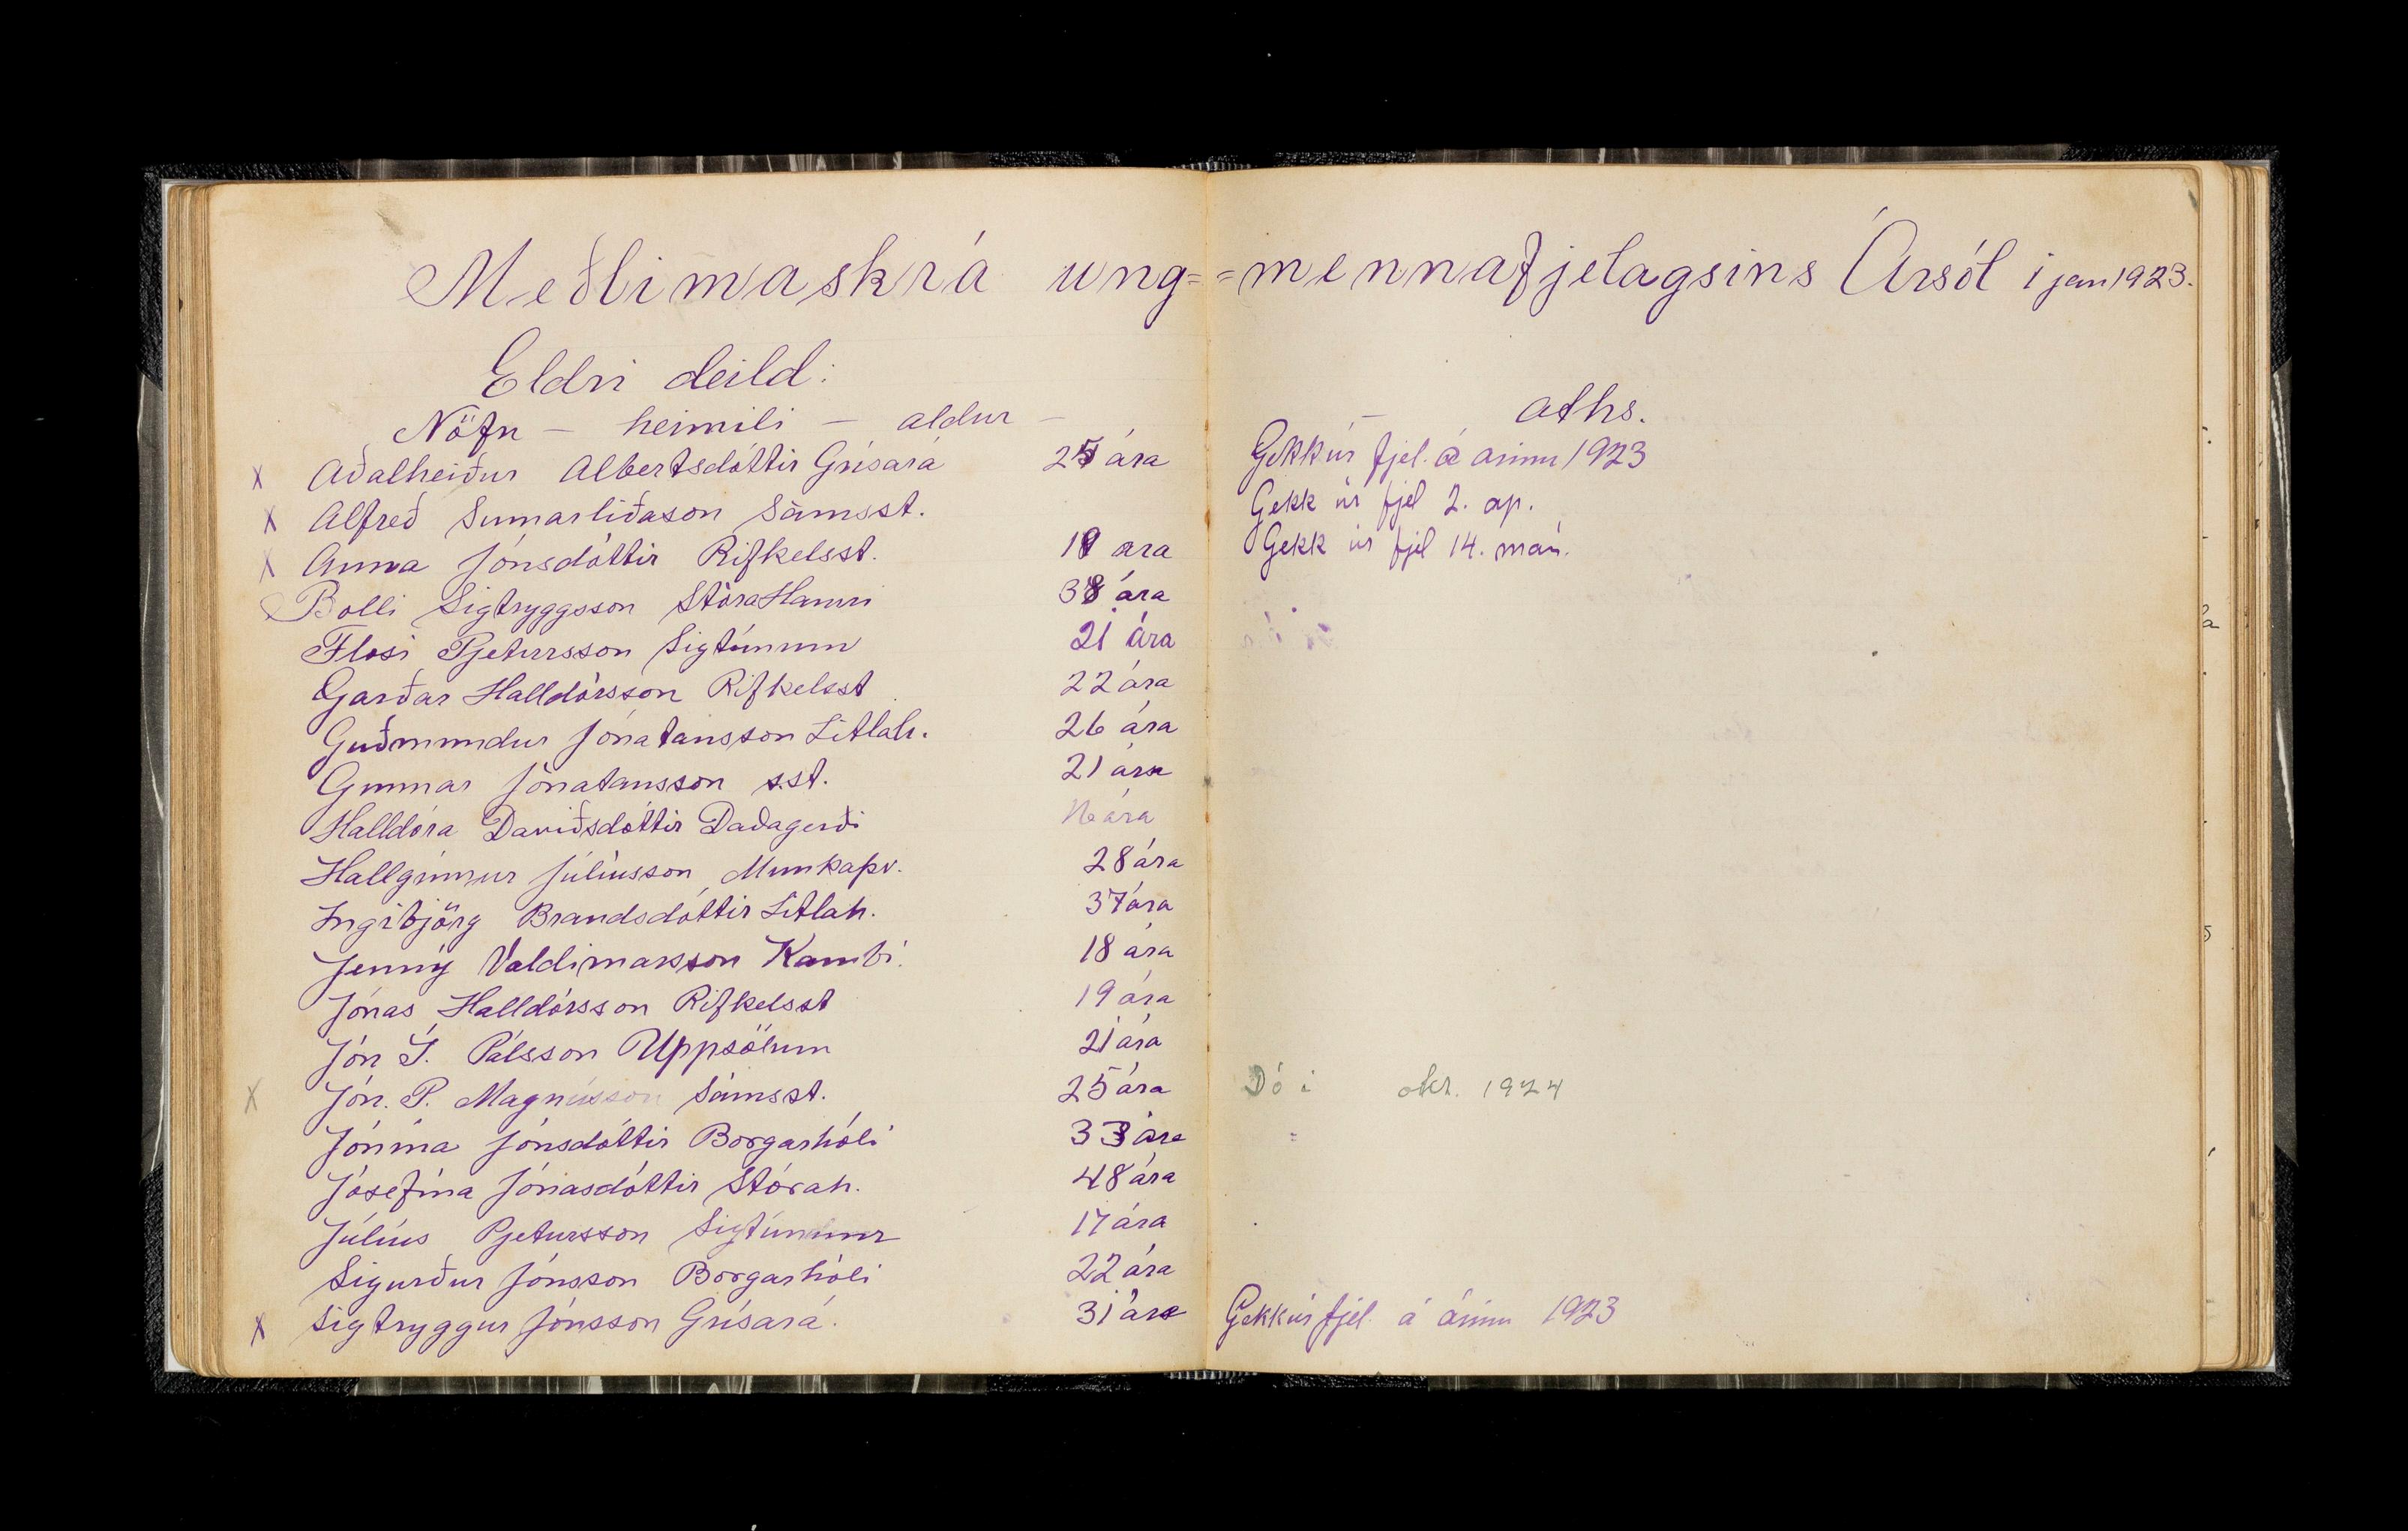 Meðlimaskrá ung= =mennafjelagsins Ársól í jan 1923.
Eldri deild:
Nöfn – heimili – aldur – – aths.
x Aðalheiður Albertsdóttir Grísará 25 ára Gekk úr fjel. á árinu 1923
x Alfreð Sumarliðason Sámsst. Gekk úr fjel 2. ap.
x Anna Jónsdóttir Rifkelsst. ára Gekk úr fjel 14. maí.
Bolli Sigtryggsson StóraHamri 38 ára
Flosi Pjetursson Sigtúnum 21 ára
Garðar Halldórsson Rifkelsst 22 ára
Guðmundur Jónatansson Litlah. 26 ára
Gunnar Jónatansson s.st. 21 ára
Halldóra Davíðsdóttir Daðagerði 16 ára
Hallgrímur Júlíusson Munkaþv. 28 ára
Ingibjörg Brandsdóttir Litlah. 37 ára
Jenný Valdimarsson Kambi. 18 ára
Jónas Halldórsson Rifkelsst 19 ára
Jón Pálsson Uppsölum 21 ára
x Jón. P. Magnússon Sámsst. 25 ára Dó í okt. 1924
Jónína Jónsdóttir Borgarhóli 33 ára
Jósefína Jónasdóttir Stórah. 48 ára
Júlíus Pjetursson Sigtúnum 17 ára
Sigurður Jónsson Borgarhóli 22 ára
x Sigtryggur Jónsson Grísará. 31 ára Gekk úr fjel. á árinu 1923